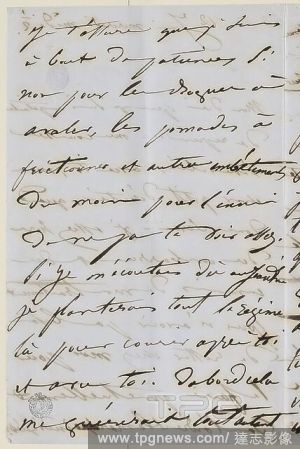 Je t'assure que je suis
à bout de patience si
non pour les drogues à
avaler, les pomades à
frictionner et autres embêtements
du moins pour l'ennui
de ne pas te voir assez.
Si je m'écoutais dès
je planterais tout le régime
là pour courir après toi
et avec toi. D'abord cela
me guérirait tout
TPG
www.tpgnews.com/達志影像